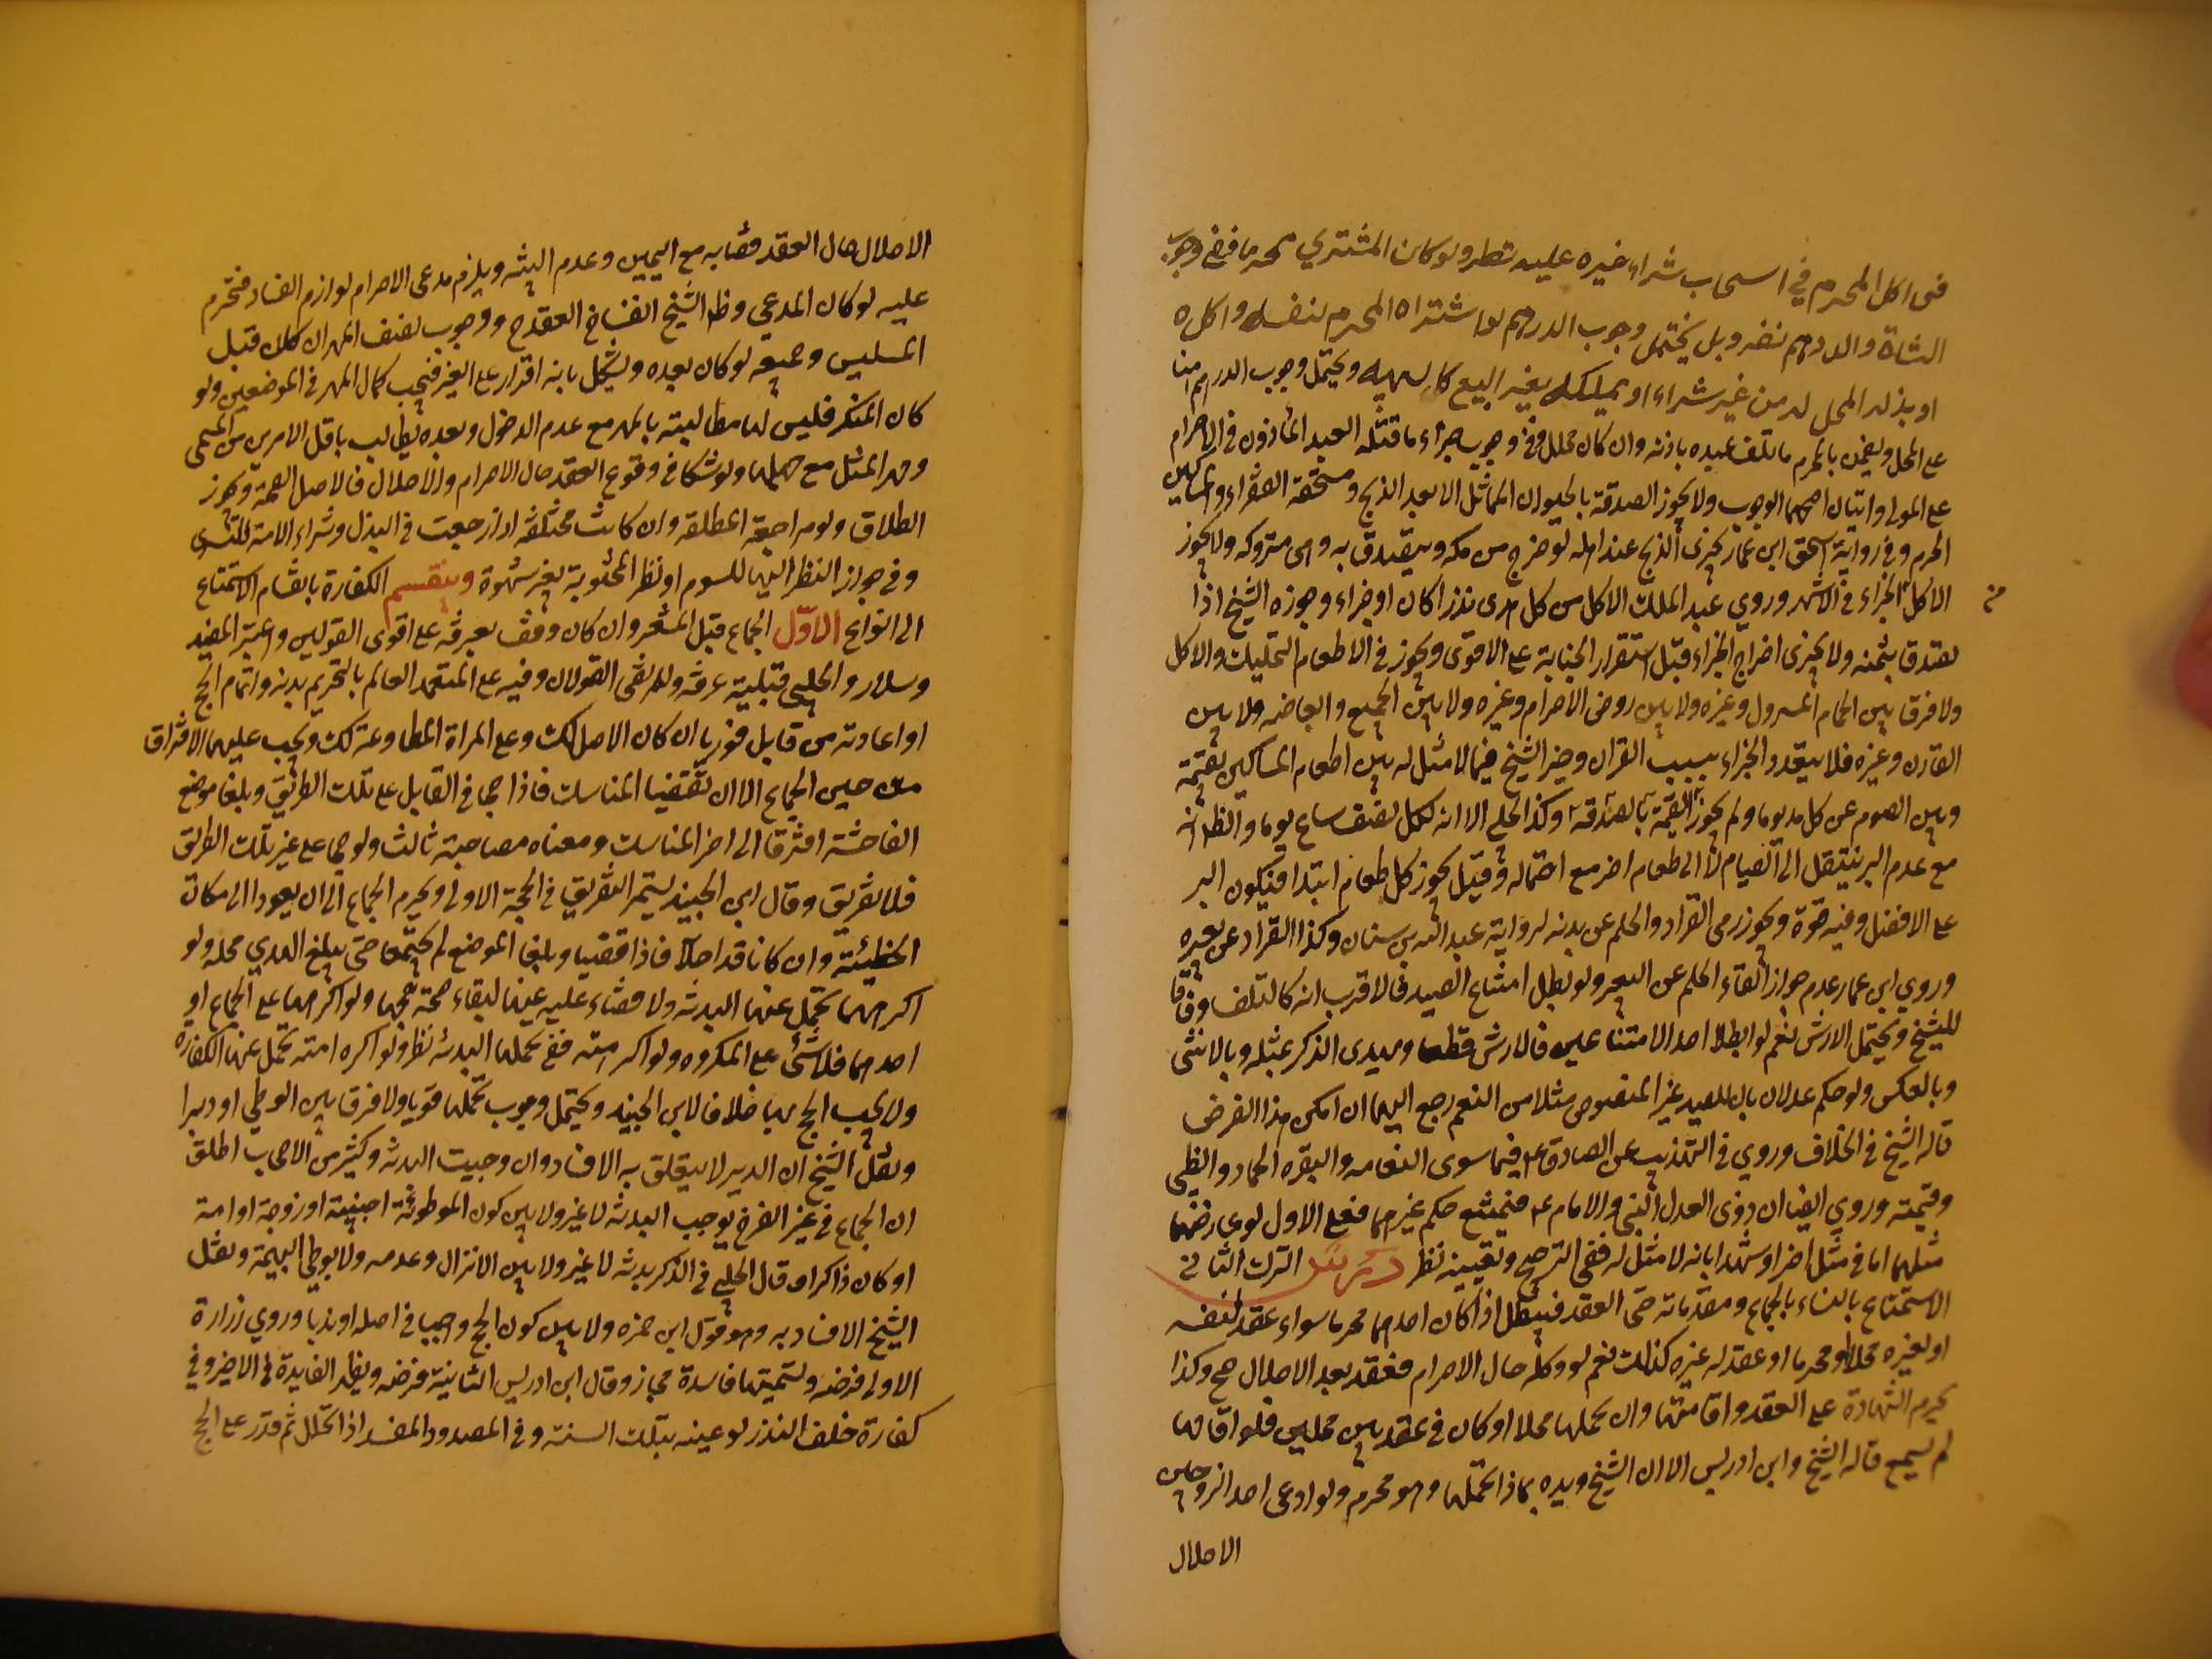 فى اكل المحرم فى اسحاب شراء غيره عليه نظر ولو كان المشتري محرما ففى وجوب
الشاة والدرهم نضر وبل يحتمل وجوب الدرهم لو اشتراه المحرم لنفسه واكله
او بذله المحل له من غير شراء او بملكه بغير البيع كالهبه ويحتمل وجوب الدراهم
على المحل ويضمن بالمحرم ما تلف عبيده باذنه وان كان محللا وفى وجوب جزاء ما قتله العبد المأذون فى الاحرام
على المولى وانتان اصحهما الوجوب ولا يجوز الصدقة بالحيوان المماثل الا بعد الذبح ومستحقه الفقراء والمساكين
الحرم وفى رواية اسحق ابن عمار يجزى الذبح عند اهله لو خرج من مكه ويتصدق به وهى متروكه ولا يجوز
الاكل الجزاء فى الاشهر وروي عبد الملك الاكل من كل هدى نذرا كان او جزاء وجوزه الشيخ اذا
تصدق بثمنه ولا يجزى اخراج الجزاء قبل استقرار الجناية على الاقوى ويجوز فى الاطعام التمليك والاكل
ولا فرق بين الحمام المسرول وغيره ولا بين روض الاحرام وغيره ولا بين الجميع والبعاضه ولا بين
القارن وغيره فلا يتعدد الجزاء بسبب القران وخير الشيخ فيما لا مثل له بين اطعام المساكين بقيمته
وبين الصوم عن كل مد يوما ولم يجوز القيمة بالصدقة وكذا الحلبي الا انه لكل نصف صاع يوما والظاهر انه
مع عدم البر ينتقل الى الصيام لا الى طعام اخر مع احتماله وقيل يجوز كل طعام ابتداء فيكون البر
على الافضل وفيه قوة ويجوز رمى القراد والحلم عن بدنه لرواية عبد الله بن سنان وكذا القراد عن بعيره
وروي ابن عمار عدم جواز القاء الحلم عن البعير ولو بطل امتناع الصيد فالاقرب انه كالتلف وفاقا
للشيخ ويحتمل الارش نعم لو ابطلا احد الامتناعين فالارش قطعا ويهدى الذكر بمثله وبالانثى
وبالعكس ولو حكم عدلان بان للصيد غير المنصوص مثلا من النعم رجع اليهما ان امكن هذا الفرض
قاله الشيخ فى الخلاف وروي فى التهذيب عن الصادق ع فيما سوى النعامه والبقره الحمار والظبى
وقيمته وروي ايضا ان ذوى العدل النبى والامام ع فيمتنع حكم غيرهما فعلى الاول لو عارضهما
مثلهما اما فى مثل اخر او شهدا بانه لا مثل له ففى الترجيح وتعيينه نظر درس الترك الثانى
الاستمتاع بالنساء بالجماع ومقدماته حتى العقد فيبطل اذا كان احدهما محرما سواء عقد لنفسه
او لغيره محلا او محرما او عقد له غيره كذلك نعم لو وكله حال الاحرام فعقد بعد الاحلال صح وكذا
يحرم الشهادة على العقد واقامتها وان تحملها محلا او كان فى عقد بين محلين فلو اقامها
لم يسمع قاله الشيخ وابن ادريس الا ان الشيخ قيده بما اذا تحملها وهو محرم ولو ادعى احد الزوجين
الاحلال
الاحلال حال العقد قضا به مع اليمين وعدم البينه ويلزم مدعى الاحرام لوازم الفساد فتحرم
عليه لو كان المدعى وظاهر الشيخ انفساخ العقد ح ووجوب نصف المهر ان كان قبل
المسيس وجميعه لو كان بعده ويشكل بانه اقرار على الغير فيجب كمال المهر فى الموضعين ولو
كان المنكر فليس لها مطالبته بالمهر مع عدم الدخول وبعده يطالب باقل الامرين من المسمى
ومهر المثل مع جهلها ولو شكا فى وقوع العقد حال الاحرام والاحلال فالاصل الصحة ويجوز
الطلاق ولو مراجعة المطلقه وان كانت مختلفه اذا رجعت فى البذل وشراء الامة للتسرى
وفى جواز النظر اليها للسوم او نظر المخطوبة بغير شهوة وينقسم الكفارة بانقسام الاستمتاع
الى انواع الاوّل الجماع قبل المشعر وان كان وقف بعرفه على اقوى القولين واعتبر المفيد
وسلار والحلبى قبلية عرفه وللمرتضى القولان وفيه على المتعمد العالم بالتحريم بدنه واتمام الحج
او اعادته من قابل فوريا ان كان الاصل كك وعلى المراة المطاوعة كك ويجب عليهما الافتراق
من حين الجماع الا ان تقضيا المناسك فاذا حجا فى القابل على تلك الطريق وبلغا موضع
الفاحشة افترقا الى اخر المناسك ومعناه مصاحبة ثالث ولو حجا على غير تلك الطريق
فلا تفريق وقال ابن الجنيد يستمر التفريق فى الحجة الاولى ويحرم الجماع الى ان يعودا الى مكان
الخطيئة وان كانا قد احلّا فاذا قضيا وبلغا الموضع لم يجتمعا حتى يبلغ الهدي محله ولو
اكرهها تحمل عنها البدنه ولا قضاء عليه عنها لبقاء صحة حجها ولو اكرههما على الجماع او
احدهما فلا شئ على المكروه ولو اكرهته ففى تحملها البدنه نظر ولو اكره امته تحمل عنها الكفاره
ولا يجب الحج بها خلافا لابن الجنيد ويحتمل وجوب تحملها قويا ولا فرق بين الوطي او دبرا
ونقل الشيخ ان الدبر لا يتعلق به الافساد وان وجبت البدنه وكثير من الاصحاب اطلق
ان الجماع فى غير الفرج يوجب البدنه لا غير ولا بين كون الموطوئة اجنبية او زوجة او امة
او كان ذاكرا وقال الحلبى فى الذكر بدنه لا غير ولا بين الانزال وعدمه ولا بوطي البهيمة ونقل
الشيخ الافساد به وهو قول ابن حمزه ولا بين كون الحج واجبا فى اصله او ندبا وروي زرارة
الاولى فرضه وتسميتها فاسدة مجاز وقال ابن ادريس الثانية فرضه ويظهر الفايدة فى الاجير وفى
كفارة خلف النذر لو عينه بتلك السنه وفى المصدود المفسد اذا تحلل ثم قدر على الحج